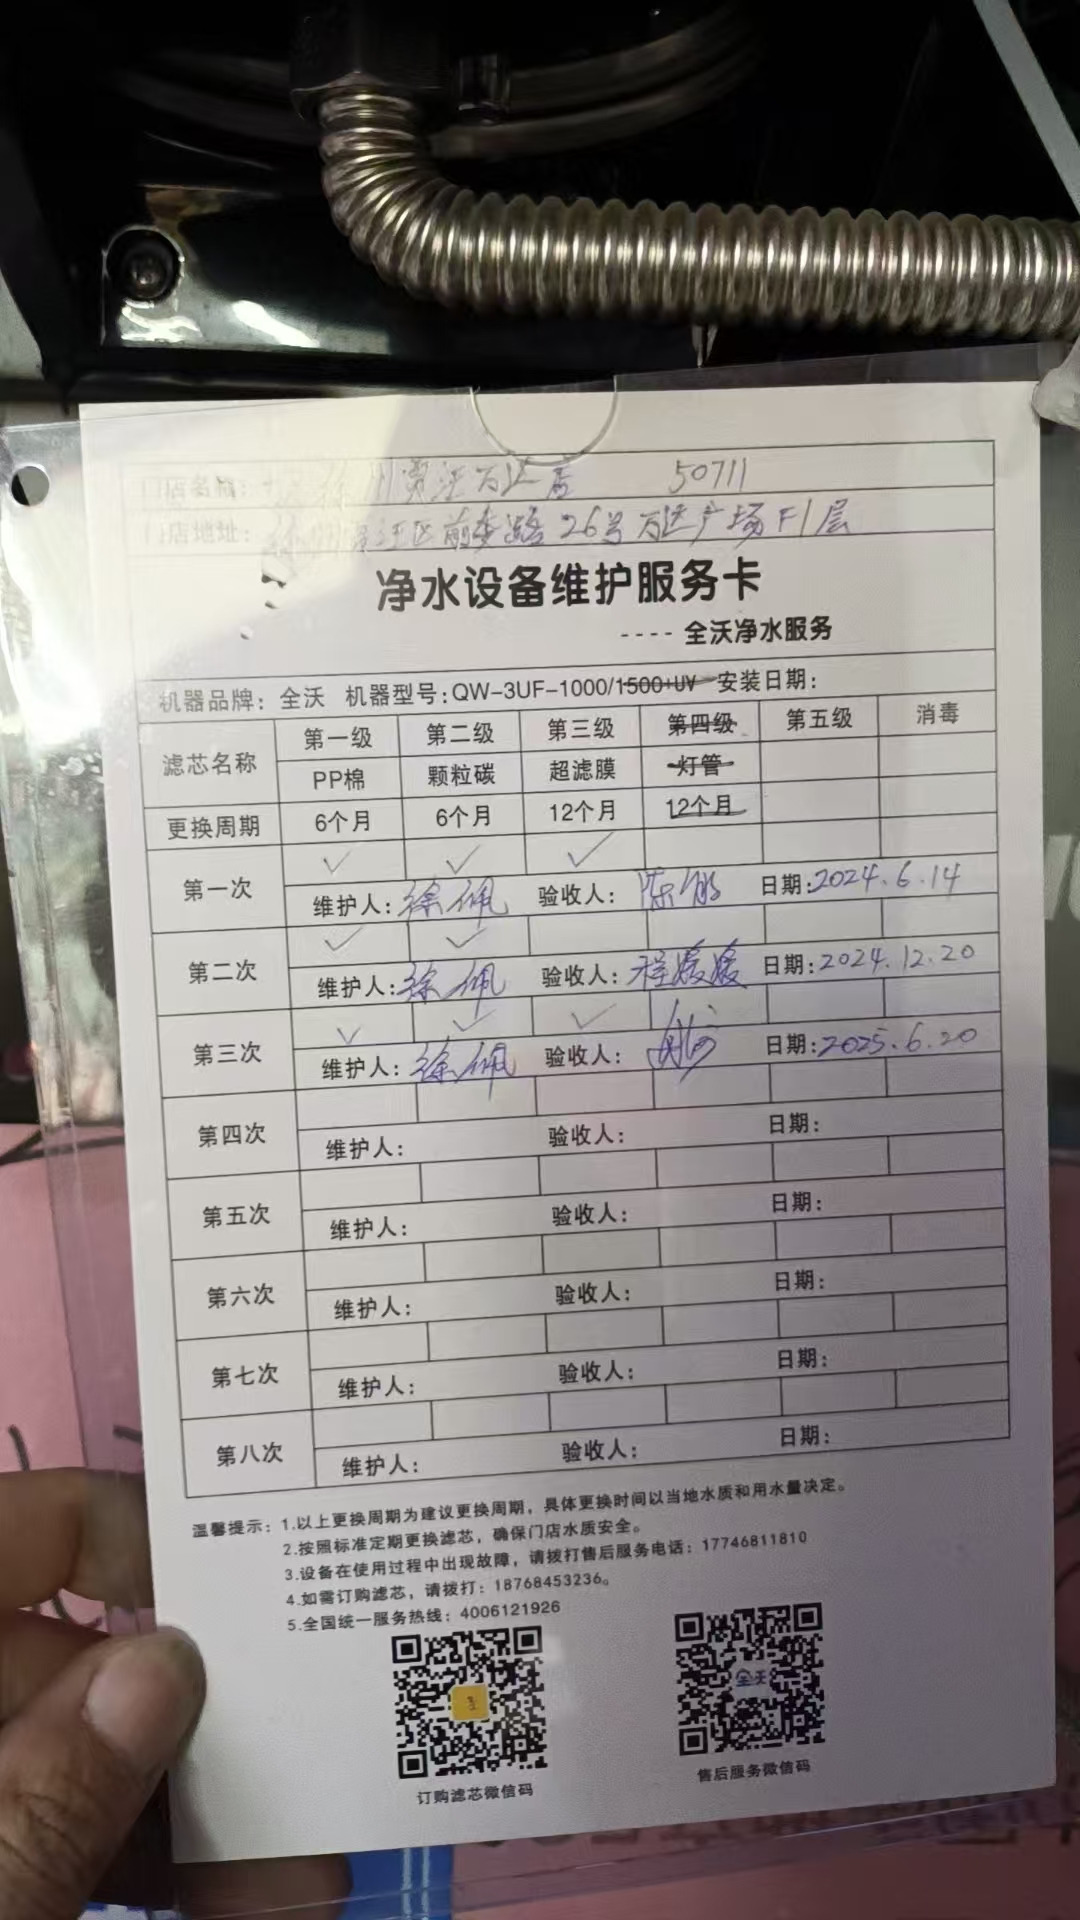 门店名称: 徐州贾汪万达店 50711
门店地址: 徐州贾汪区前委路26号万达广场F1层
净水设备维护服务卡
---- 全沃净水服务
机器品牌: 全沃 机器型号:QW-3UF-1000/1500+UV 安装日期:
滤芯名称 第一级 第二级 第三级 第四级 第五级 消毒
PP棉 颗粒碳 超滤膜 灯管
更换周期 6个月 6个月 12个月 12个月
第一次 ✓ ✓ ✓
维护人: 徐佩 验收人: 陈 日期:2024.6.14
第二次 ✓ ✓
维护人: 徐佩 验收人: 程媛媛 日期:2024.12.20
第三次 ✓ ✓ ✓
维护人: 徐佩 验收人: 日期:2025.6.20
第四次
维护人: 验收人: 日期:
第五次
维护人: 验收人: 日期:
第六次
维护人: 验收人: 日期:
第七次
维护人: 验收人: 日期:
第八次
维护人: 验收人: 日期:
温馨提示: 1.以上更换周期为建议更换周期，具体更换时间以当地水质和用水量决定。
2.按照标准定期更换滤芯，确保门店水质安全。
3.设备在使用过程中出现故障，请拨打售后服务电话: 17746811810
4.如需订购滤芯，请拨打: 18768453236。
5.全国统一服务热线: 4006121926
全沃
订购滤芯微信码 售后服务微信码